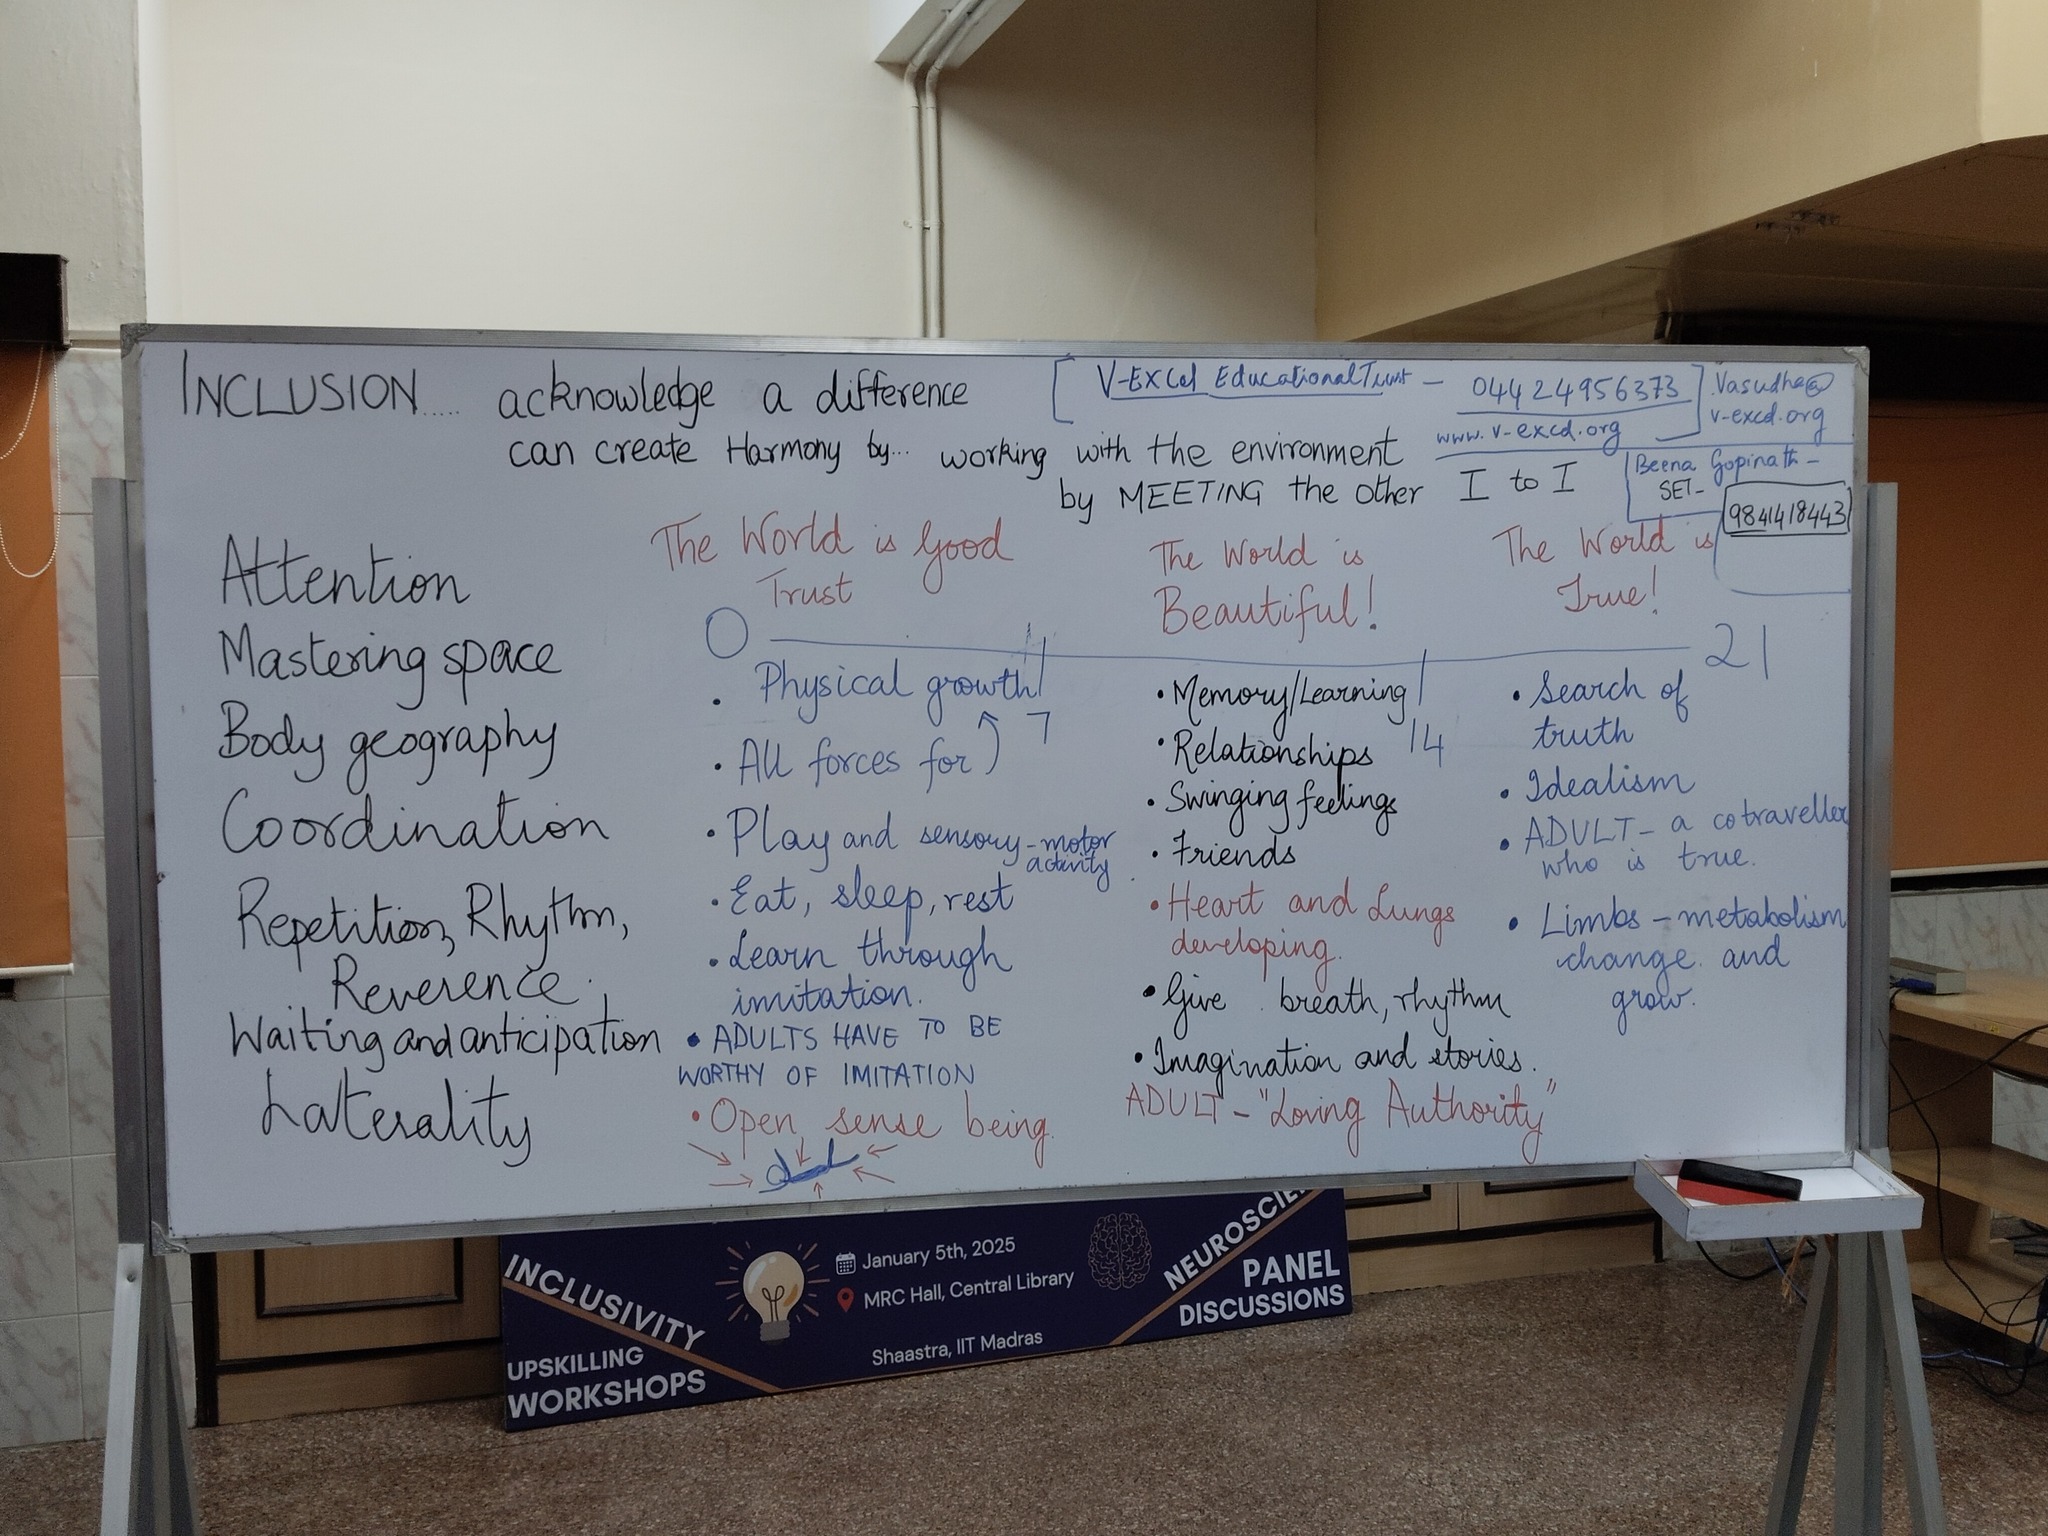 INCLUSION..... acknowledge a difference
can create Harmony by... working with the environment
by MEETING the other I to I
V-EXCel Educational Trust - 04424956373
www.v-excel.org
Vasudha@
v-excel.org
Beena Gopinath -
SET-
9841418443
Attention
Mastering space
Body geography
Coordination
Repetition, Rhythm,
Reverence.
Waiting and anticipation
Laterality
The World is Good
Trust
0
• Physical growth
7
• All forces for
• Play and sensory-motor
activity
• Eat, sleep, rest
• Learn through
imitation.
• ADULTS HAVE TO BE
WORTHY OF IMITATION
• Open sense being
The World is
Beautiful!
• Memory/Learning
14
• Relationships
• Swinging feelings
• Friends
• Heart and Lungs
developing.
• Give breath, rhythm
• Imagination and stories.
ADULT - "Loving Authority"
The World is
True!
21
• Search of
truth
• Idealism
• ADULT - a cotraveller
who is true.
• Limbs - metabolism
change and
grow.
INCLUSIVITY
UPSKILLING
WORKSHOPS
January 5th, 2025
MRC Hall, Central Library
Shaastra, IIT Madras
PANEL
DISCUSSIONS